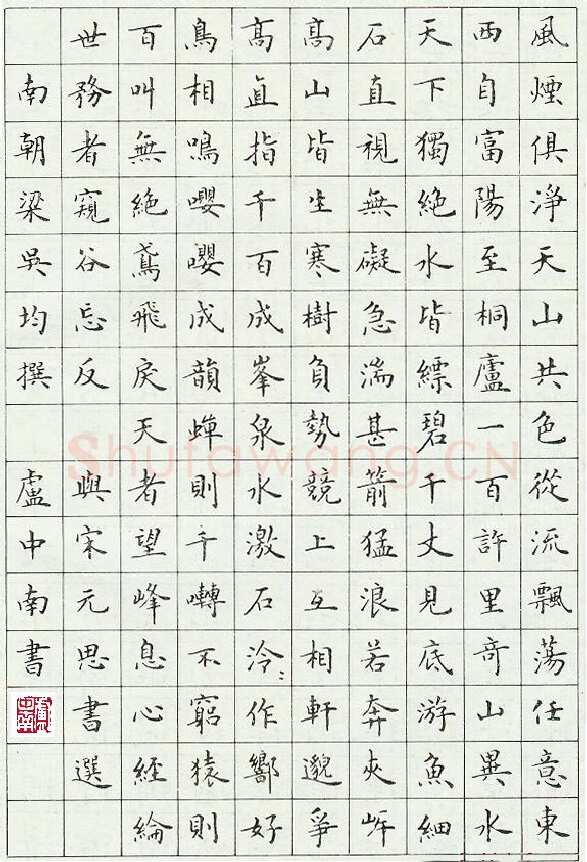 風煙俱淨天山共色從流飄蕩任意東
西自富陽至桐廬一百許里奇山異水
天下獨絕水皆縹碧千丈見底游魚細
石直視無礙急湍甚箭猛浪若奔夾岸
高山皆生寒樹負勢競上互相軒邈爭
高直指千百成峯泉水激石泠〻作響好
鳥相鳴嚶嚶成韻蟬則千囀不窮猿則
百叫無絕鳶飛戾天者望峰息心經綸
世務者窺谷忘反 與宋元思書選
南朝梁吳均撰 盧中南書
Shufawang.CN